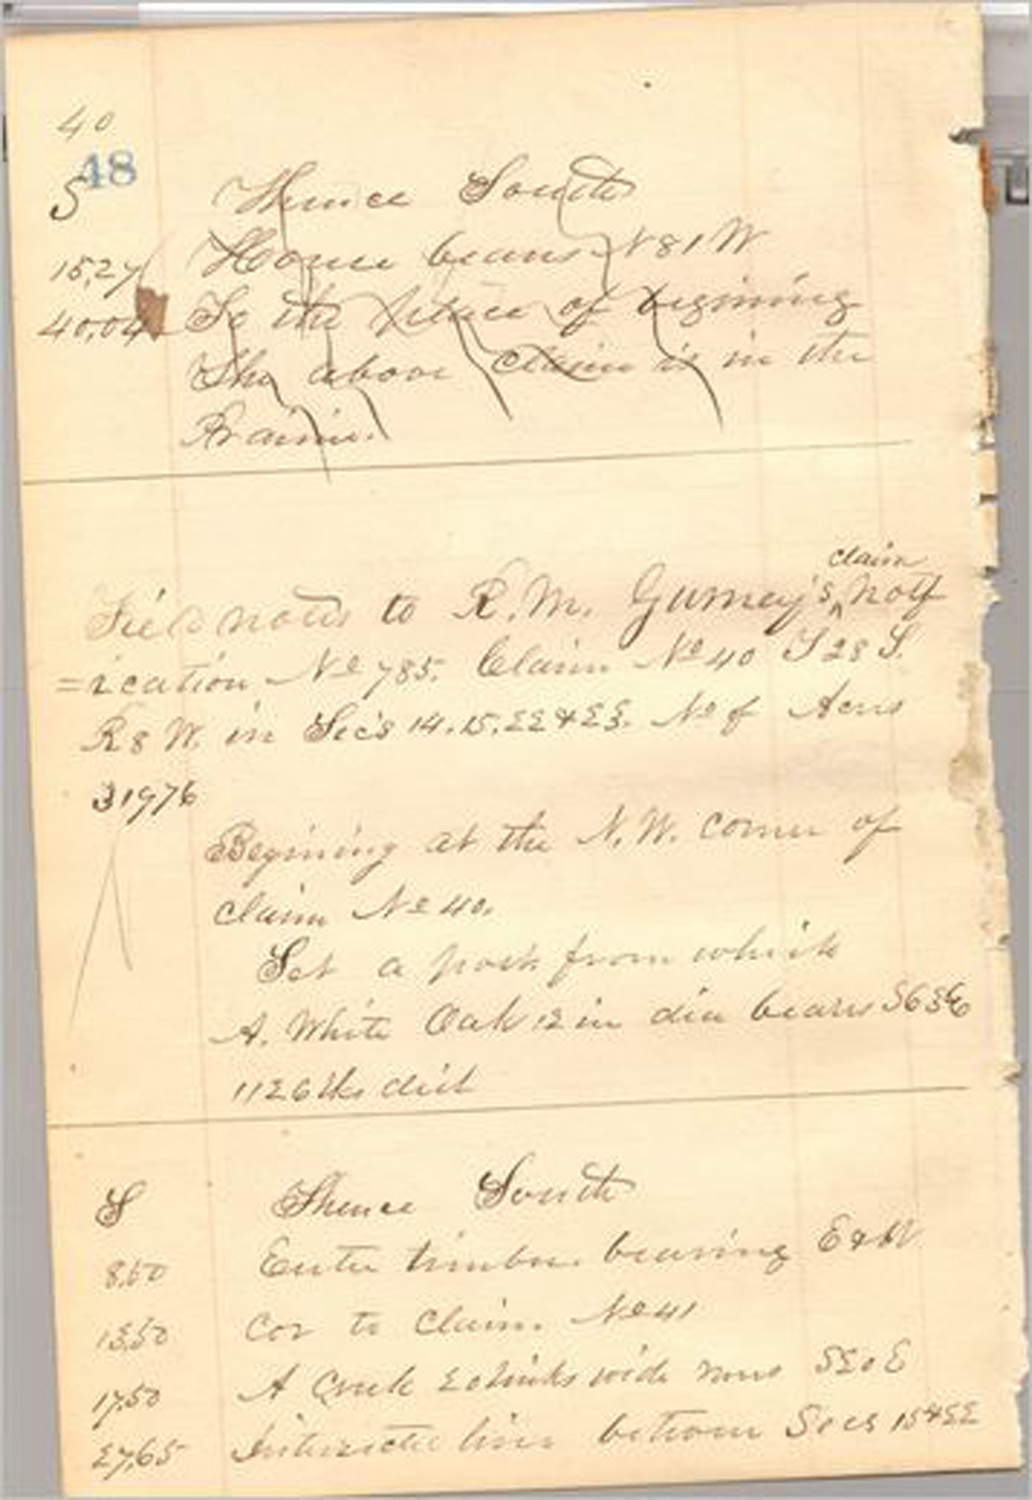 40
48
S Thence South
15,27 House bears N 81 W
40,04 To the place of begining
The above claim is in the
Prairie.
claim
Field notes to R. M. Gurney's ^ Notif
=ication No 785. Claim No 40 T 28 S.
R 8 W. in Sec's 14. 15. 22 & 23. No of Acres
31976
Begining at the N. W. corner of
claim No 40.
Set a post from which
A. White Oak 12 in dia bears S 63 E
1126 lks dist
S Thence South
8,50 Enter timber bearing E & W
13,50 Cor to Claim No 41
17,50 A Creek 20 links wide runs S 20 E
27,65 Intersected line between Secs 15 & 22